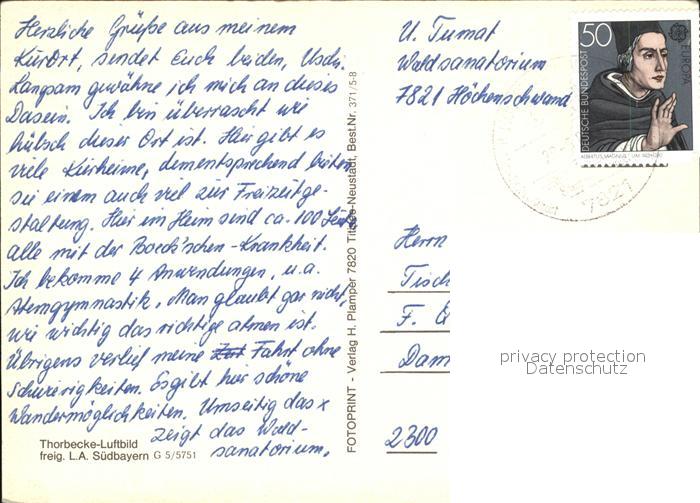 Herzliche Grüße aus meinem
Kurort, sendet Euch beiden, Uschi.
Langsam gewöhne ich mich an dieses
Dasein. Ich bin überrascht wie
hübsch dieser Ort ist. Hier gibt es
viele Kurheime, dementsprechend bieten
sie einem auch viel zur Freizeitge-
staltung. Hier im Heim sind ca. 100 Leute
alle mit der Boeck'schen-Krankheit.
Ich bekomme 4 Anwendungen, u.a.
Atemgymnastik. Man glaubt gar nicht,
wie wichtig das richtige atmen ist.
Übrigens verlief meine Fahrt ohne
Schwierigkeiten. Es gibt hier schöne
Wandermöglichkeiten. Umseitig das x
zeigt das Wald-
sanatorium.
Thorbecke-Luftbild
freig. L.A. Südbayern G 5/5751
FOTOPRINT - Verlag H. Plamper 7820 Titisee-Neustadt, Best.Nr. 371/5-8
U. Tumat
Waldsanatorium
7821 Höchenschwand
50
DEUTSCHE BUNDESPOST
EUROPA
ALBERTUS MAGNUS
7821
Herrn
Tisch
F.
Dam
2300
privacy protection
Datenschutz